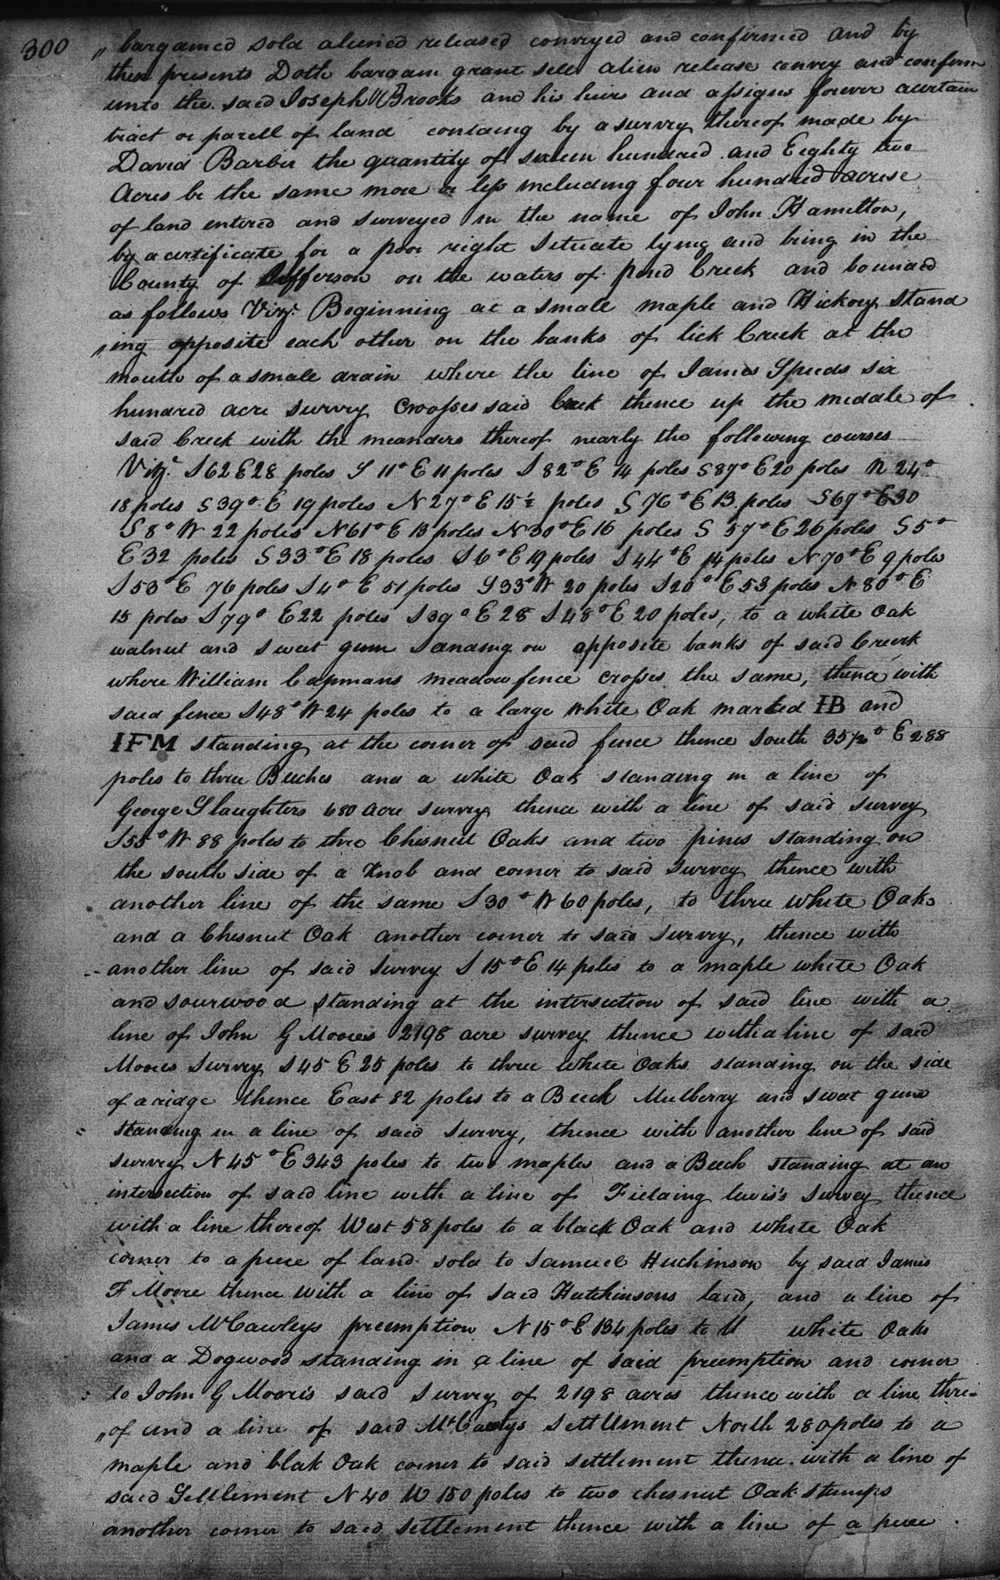 300
" bargained sold aliened released conveyed and confirmed and by
these presents Doth bargain grant sell alien release convey and confirm
unto the said Joseph Brooks and his heirs and assigns forever a certain
tract or parcell of land containg by a survey thereof made by
David Barbir the quantity of sixteen hundred and Eighty two
Acres be the same more or less including four hundred acrese
of land entered and surveyed in the name of John Hamilton,
by a certificate for a poor right Situate lying and being in the
County of Jefferson on the waters of pond Creek and bounded
as follows Vizt. Beginning at a small maple and Hickory stand
" ing opposite each other on the banks of lick Creek at the
mouth of a small drain where the line of James Speeds six
hundred acre survey Crosses said Creek thence up the meddle of
said Creek with the meanders thereof nearly the following courses
Vizt. S62E28 poles S 11° E 11 poles S 82° E 14 poles S 87° E 20 poles N 24°
18 poles S 39° E 19 poles N 27° E 15½ poles S 76° E 13 poles S 67° E 30
S 8° W 22 poles N 61° E 13 poles N 30° E 16 poles S 57° E 26 poles S 5°
E 32 poles S 33° E 18 poles S 6° E 19 poles S 44° E 14 poles N 70° E 9 poles
S 53° E 76 poles S 4° E 51 poles S 33° W 20 poles S 20° E 53 poles N 80° E
15 poles S 79° E 22 poles S 39° E 28 S 48° E 20 poles, to a white oak
walnut and sweet gum Standing on opposite banks of said Creek
where William Capmans meadow fence crosses the same, thence with
said fence S 48° W 24 poles to a large white Oak marked IB and
IFM standing at the corner of said fence thence South 35½° E 288
poles to three Beeches and a white Oak standing in a line of
George Slaughters 680 acre survey thence with a line of said survey
S 55° W 88 poles to thre Chesnut Oaks and two pines standing on
the south side of a Knob and corner to said Survey thence with
another line of the same S 30° W 60 poles, to three white Oaks
and a Chesnut Oak another corner to said survey, thence with
another line of said survey S 15° E 14 poles to a maple white Oak
and sourwood standing at the intersection of said line with a
line of John G Moores 2198 acre survey thence with a line of said
Moores Survey S 45 E 25 poles to three White Oaks standing on the side
of a ridge thence East 82 poles to a Beech Mulberry and swet gum
standing in a line of said survey, thence with another line of said
survey N 45° E 343 poles to two maples and a Beech standing at an
intersection of said line with a line of Fielding lewis's survey thence
with a line thereof West 58 poles to a black Oak and white Oak
corner to a piece of land sold to Samuel Huchinson by said James
F Moore thence with a line of said Hutchinsons land, and a line of
James McCawleys preemption N 15° E 134 poles to white Oaks
and a Dogwood standing in a line of said preemption and corner
to John G Moore's said survey of 2198 acres thence with a line there
" of and a line of said McCawlys Settlment North 280 poles to a
maple and blak Oak corner to said settlement thence with a line of
said Settlement N 40 W 150 poles to two chesnut Oak stumps
another corner to said settlement thence with a line of a piece